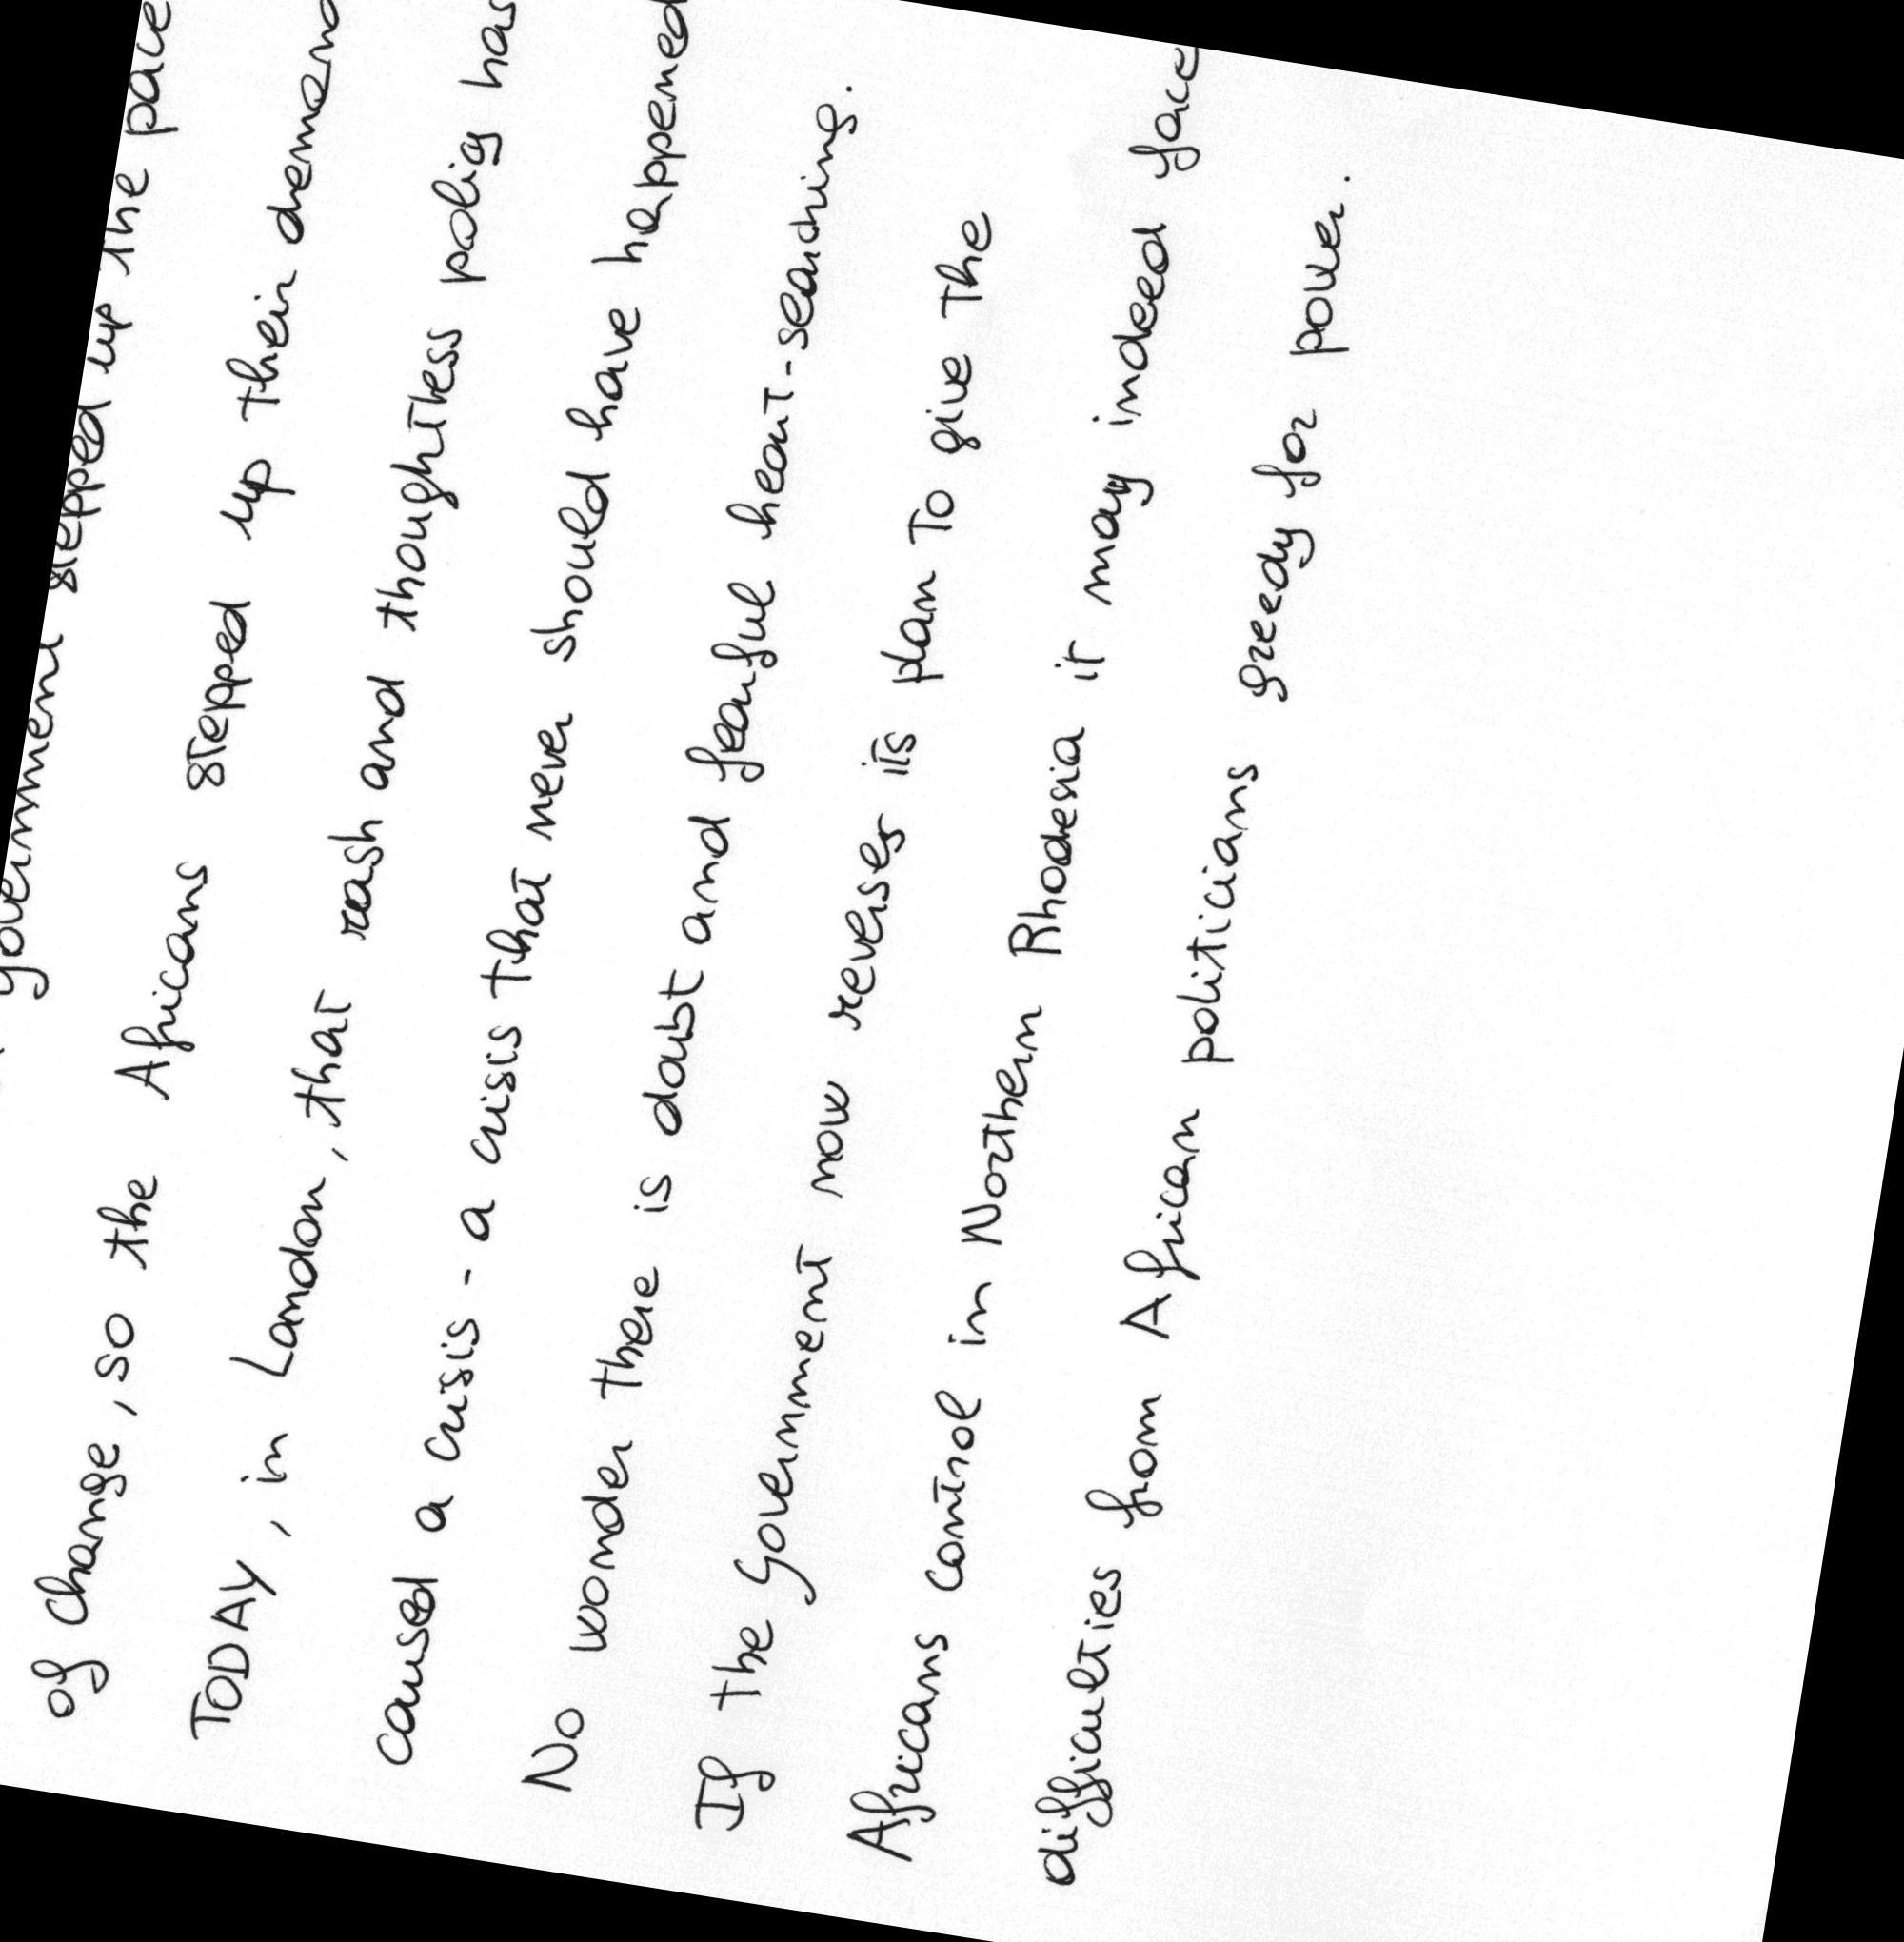 government stepped up the pace
of change, so the Africans stepped up their demand
TODAY, in London, that rash and thoughtless policy has
caused a crisis - a crisis that never should have happened
No wonder there is doubt and fearful heart-searching.
If the Government now reverses its plan to give the
Africans control in Northern Rhodesia it may indeed face
difficulties from African politicians greedy for power.